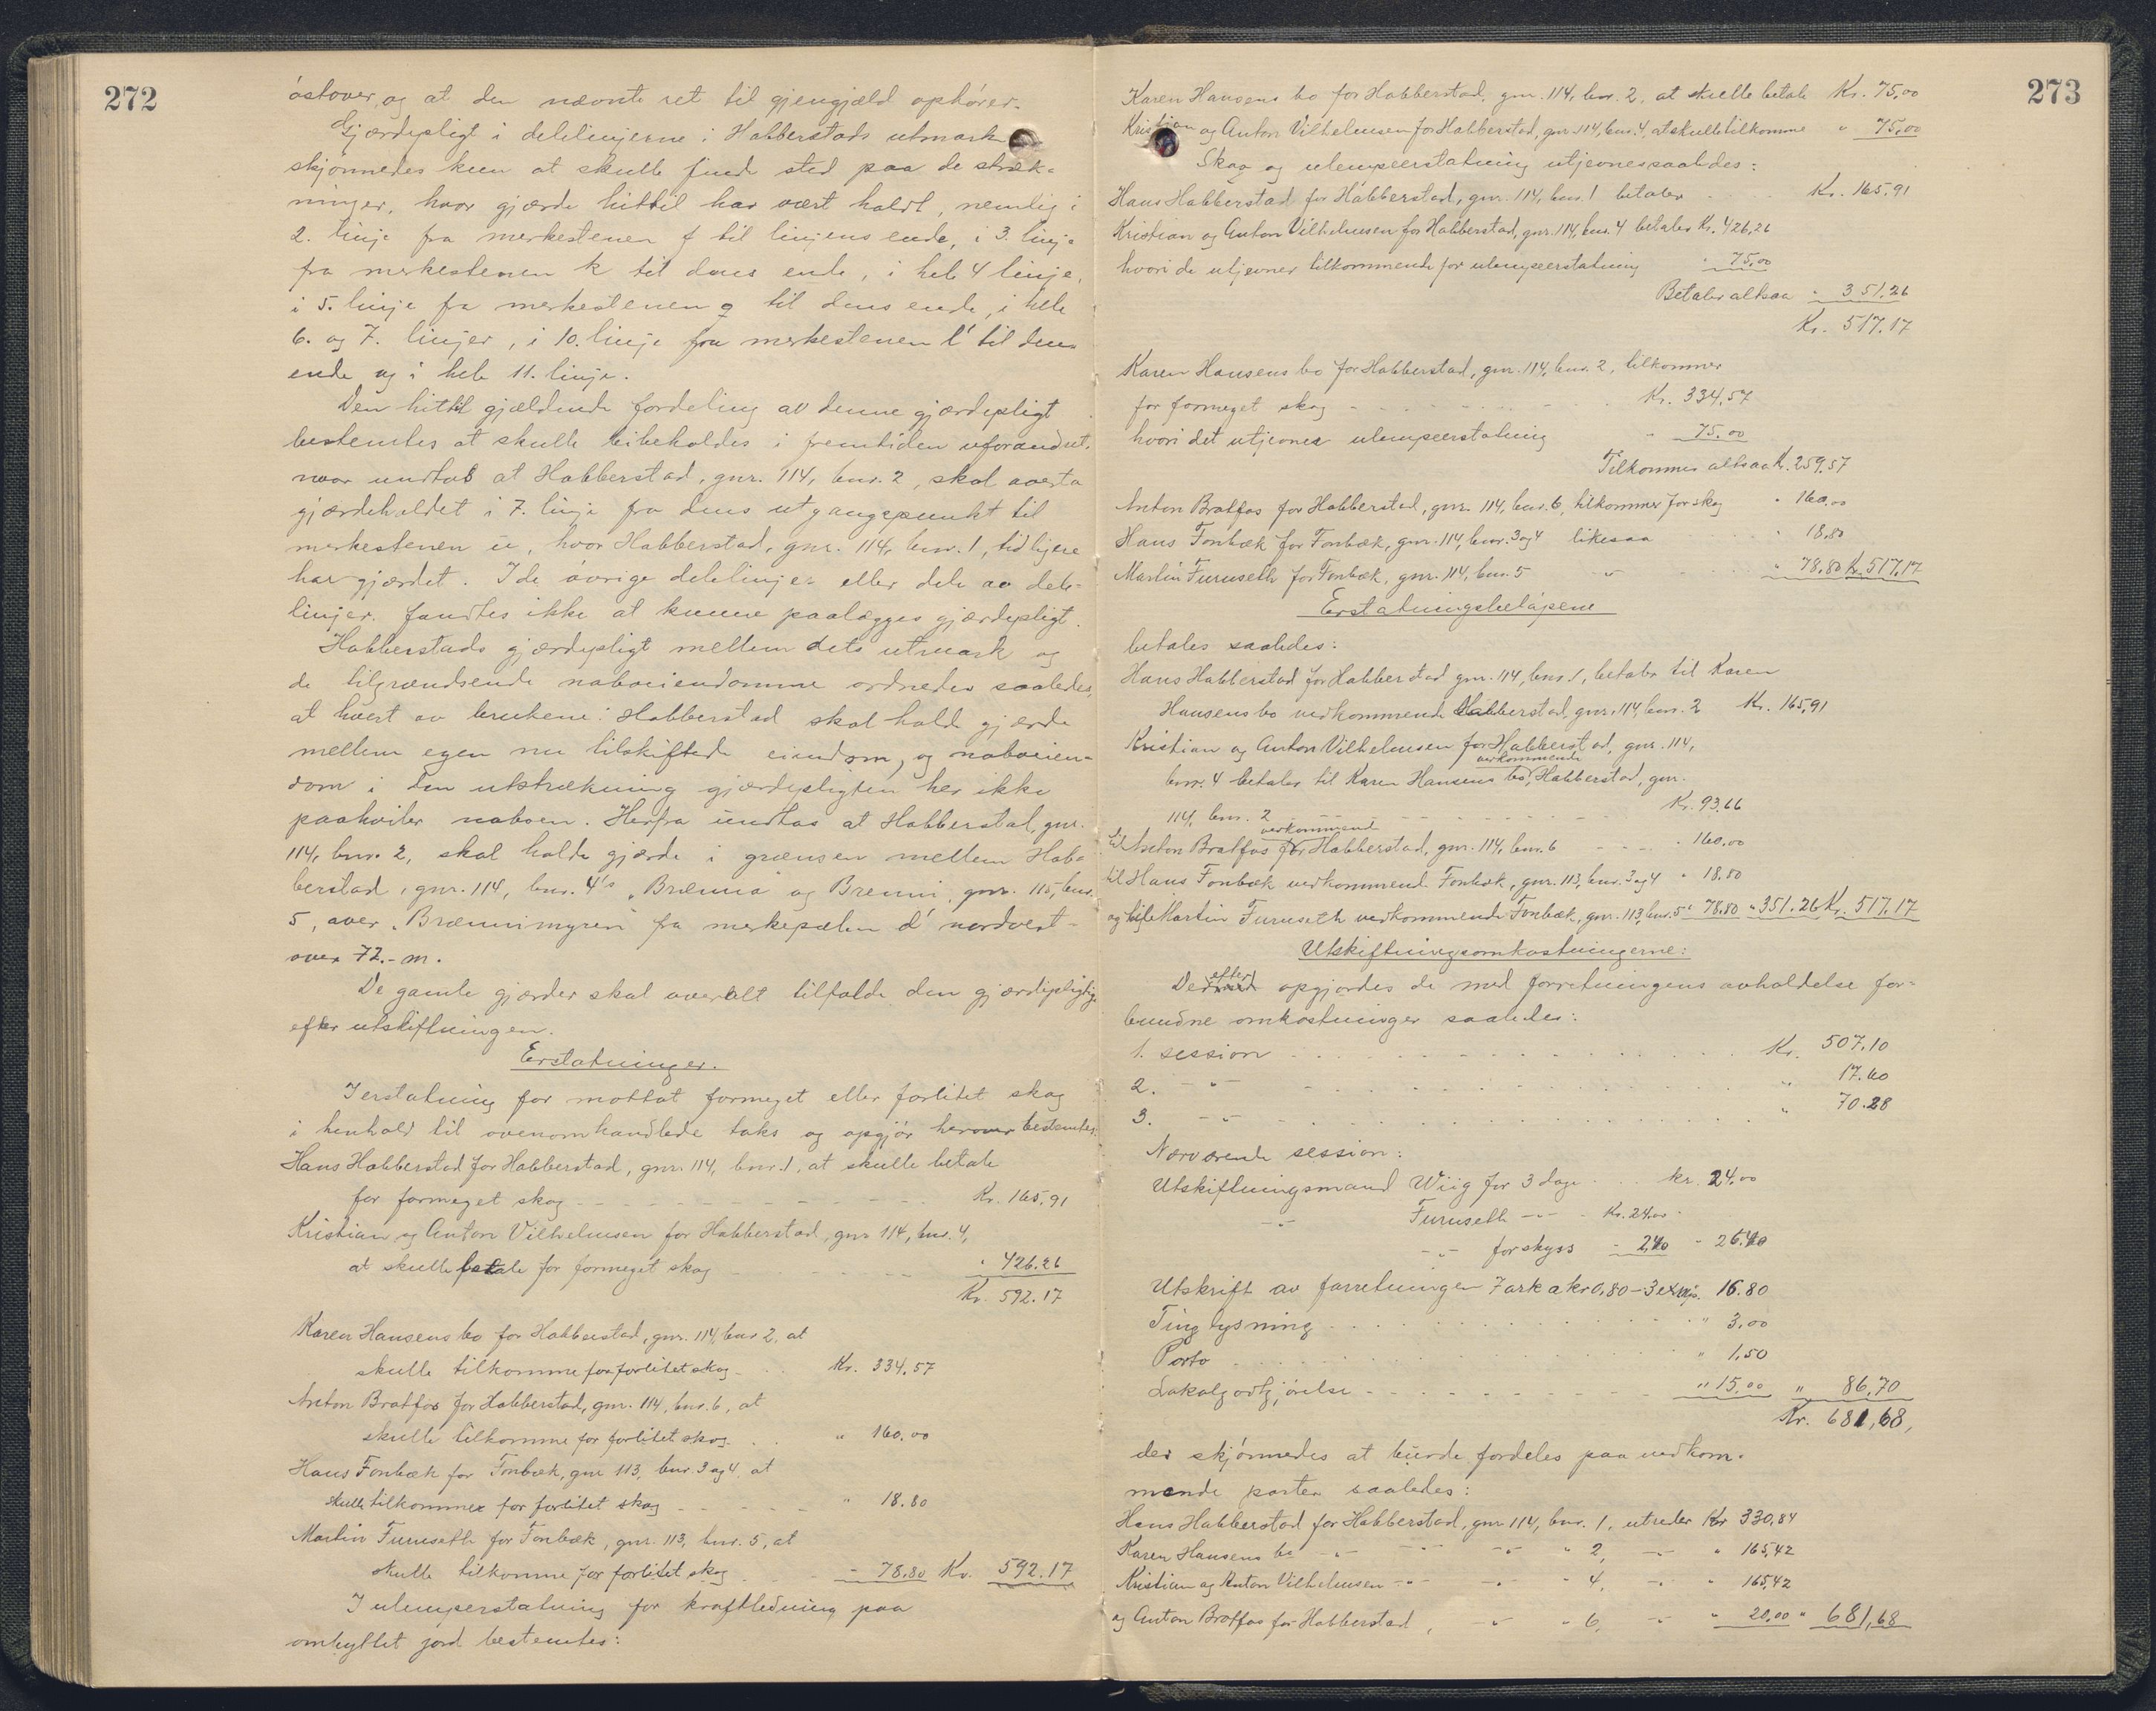 272
østover, og at den nævnte ret til gjengjæld ophører.
Gjærdepligt i delelinjerne i Habberstads utmark
skjønnedes kun at skulle finde sted paa de stræk-
ninger, hvor gjærde hittil har vært holdt, nemlig i
2. linje fra merkestenen f til linjens ende, i 3. linje
fra merkestenen k til dens ende, i hele 4 linje,
i 5. linje fra merkestenen q til dens ende, i hele
6. og 7. linjer, i 10. linje fra merkestenen l' til dens
ende og i hele 11. linje.
Den hittil gjældende fordeling av denne gjærdepligt
bestemtes at skulle bibeholdes i fremtiden uforandret,
naar undtas at Habberstad, gnr. 114, bnr. 2, skal overta
gjærdeholdet i 7. linje fra dens utgangspunkt til
merkestenen u, hvor Habberstad, gnr. 114, bnr. 1, tidligere
har gjærdet. I de øvrige delelinjer eller dele av dele-
linjer fandtes ikke at kunne paalægges gjærdepligt.
Habberstads gjærdepligt mellem dets utmark og
de tilgrændsende naboeiendomme ordnedes saaledes,
at hvert av brukene i Habberstad skal holde gjærde
mellem egen nu tilskiftede eiendom, og naboeien-
dom i den utstrækning gjærdepligten her ikke
paahviler naboen. Herfra undtas at Habberstad, gnr.
114, bnr. 2, skal holde gjærde i grænsen mellem Hab-
berstad, gnr. 114, bnr. 4's „Brænna" og Brenni, gnr. 115, bnr.
5, over „Brænnimyren" fra merkepælen d' nordvest-
over 72.- m.
De gamle gjærder skal overalt tilfalde den gjærdepligtige
efter utskiftningen.
Erstatninger.
I erstatning for mottat formeget eller forlitet skog
i henhold til ovenomhandlede takst og opgjør herover bestemtes:
Hans Habberstad for Habberstad, gnr. 114, bnr. 1, at skulle betale
for formeget skog - - - Kr. 165,91
Kristian og Anton Vilhelmsen for Habberstad, gnr 114, bnr. 4,
at skulle betale for formeget skog " 426.26
Kr. 592.17
Karen Hansens bo for Habberstad, gnr. 114, bnr 2, at
skulle tilkomme for forlitet skog Kr. 334,57
Anton Bratfos for Habberstad, gnr. 114, bnr. 6, at
skulle tilkomme for forlitet skog " 160,00
Hans Fonbæk for Fonbæk, gnr 113, bnr. 3 og 4, at
skulle tilkomme for forlitet skog " 18.80
Martin Furuseth for Fonbæk, gnr. 113, bnr. 5, at
skulle tilkomme for forlitet skog - 78,80 Kr. 592.17
I ulempeerstatning for kraftledning paa
ombyttet jord bestemtes:
273
Karen Hansens bo for Habberstad, gnr. 114, bnr. 2, at skulle betale Kr. 75,00
Kristian og Anton Vilhelmsen for Habberstad, gnr 114, bnr. 4, at skulle tilkomme " 75,00
Skog og ulempeerstatning utjevnes saaledes:
Hans Habberstad for Habberstad, gnr. 114, bnr. 1 betaler Kr. 165.91
Kristian og Anton Vilhelmsen for Habberstad, gnr. 114, bnr. 4 betaler Kr. 426,26
hvori de utjevner tilkommende for ulempeerstatning " 75,00
Betaler altsaa " 351,26
Kr. 517.17
Karen Hansens bo for Habberstad, gnr. 114, bnr. 2, tilkommer
for formeget skog - Kr. 334,57
hvori det utjevner ulempeerstatning " 75.00
Tilkommer altsaa Kr. 259,57
Anton Bratfos for Habberstad, gnr. 114, bnr. 6, tilkommer for skog " 160,00
Hans Fonbæk for Fonbæk, gnr. 114, bnr. 3 og 4 likesaa " 18,80
Martin Furuseth for Fonbæk, gnr. 114, bnr. 5 " " 78,80 Kr. 517,17
Erstatningsbeløpene
betales saaledes:
Hans Habberstad for Habberstad gnr. 114, bnr. 1, betaler til Karen
Hansens bo vedkommende Habberstad, gnr. 114, bnr. 2 Kr. 165,91
Kristian og Anton Vilhelmsen for Habberstad, gnr. 114,
vedkommende
bnr. 4 betaler til Karen Hansens bo, Habberstad, gnr.
114, bnr. 2 Kr. 93,66
vedkommende
til Anton Bratfos for Habberstad, gnr. 114, bnr. 6 " 160,00
til Hans Fonbæk vedkommende Fonbæk, gnr. 113, bnr. 3 og 4 " 18.80
og til Martin Furuseth vedkommende Fonbæk, gnr. 113, bnr. 5 " 78,80 " 351.26 Kr. 517,17
Utskiftningsomkostningerne:
efter
Der opgjordes de med forretningens avholdelse for-
bundne omkostninger saaledes:
1. session Kr. 507.10
2. -"- " 17.60
3. -"- " 70.28
Nærværende session:
Utskiftningsmand Wiig for 3 dage kr. 24.00
-"- Furuseth -"- Kr. 24.00
-"- for skyss - 2,40 " 26.40
Utskrift av forretningen 7 ark a kr 0,80 - 3 expl. 16.80
Tinglysning " 3,00
Porto " 1,50
Lokalgodtgjørelse " 15,00 " 86,70
Kr. 681,68,
der skjønnedes at burde fordeles paa vedkom-
mende parter saaledes:
Hans Habberstad for Habberstad, gnr 114, bnr. 1, utreder Kr 330,84
Karen Hansens bo -"- -"- -"- " 2, -"- " 165,42
Kristian og Anton Vilhelmsen -"- -"- " 4, -"- " 165,42
og Anton Bratfos for Habberstad, -"- " 6, -"- " 20,00 " 681,68